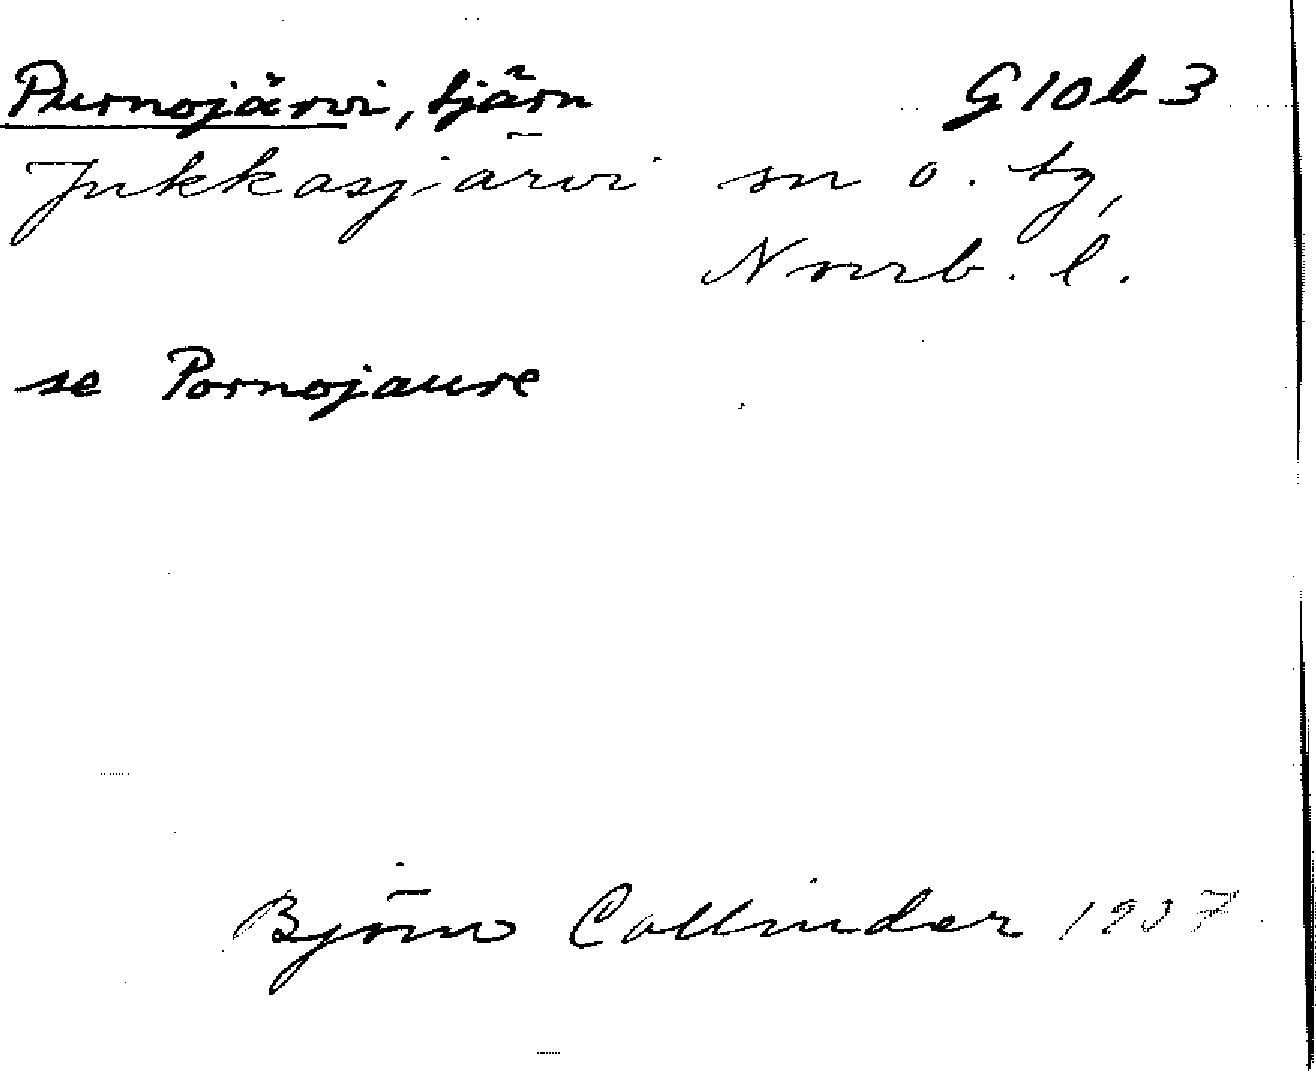 Purnojärvi, tjärn G10b3
Jukkasjärvi sn o. by,
Norrb. l.
se Pornojaure
Björn Collinder 1937